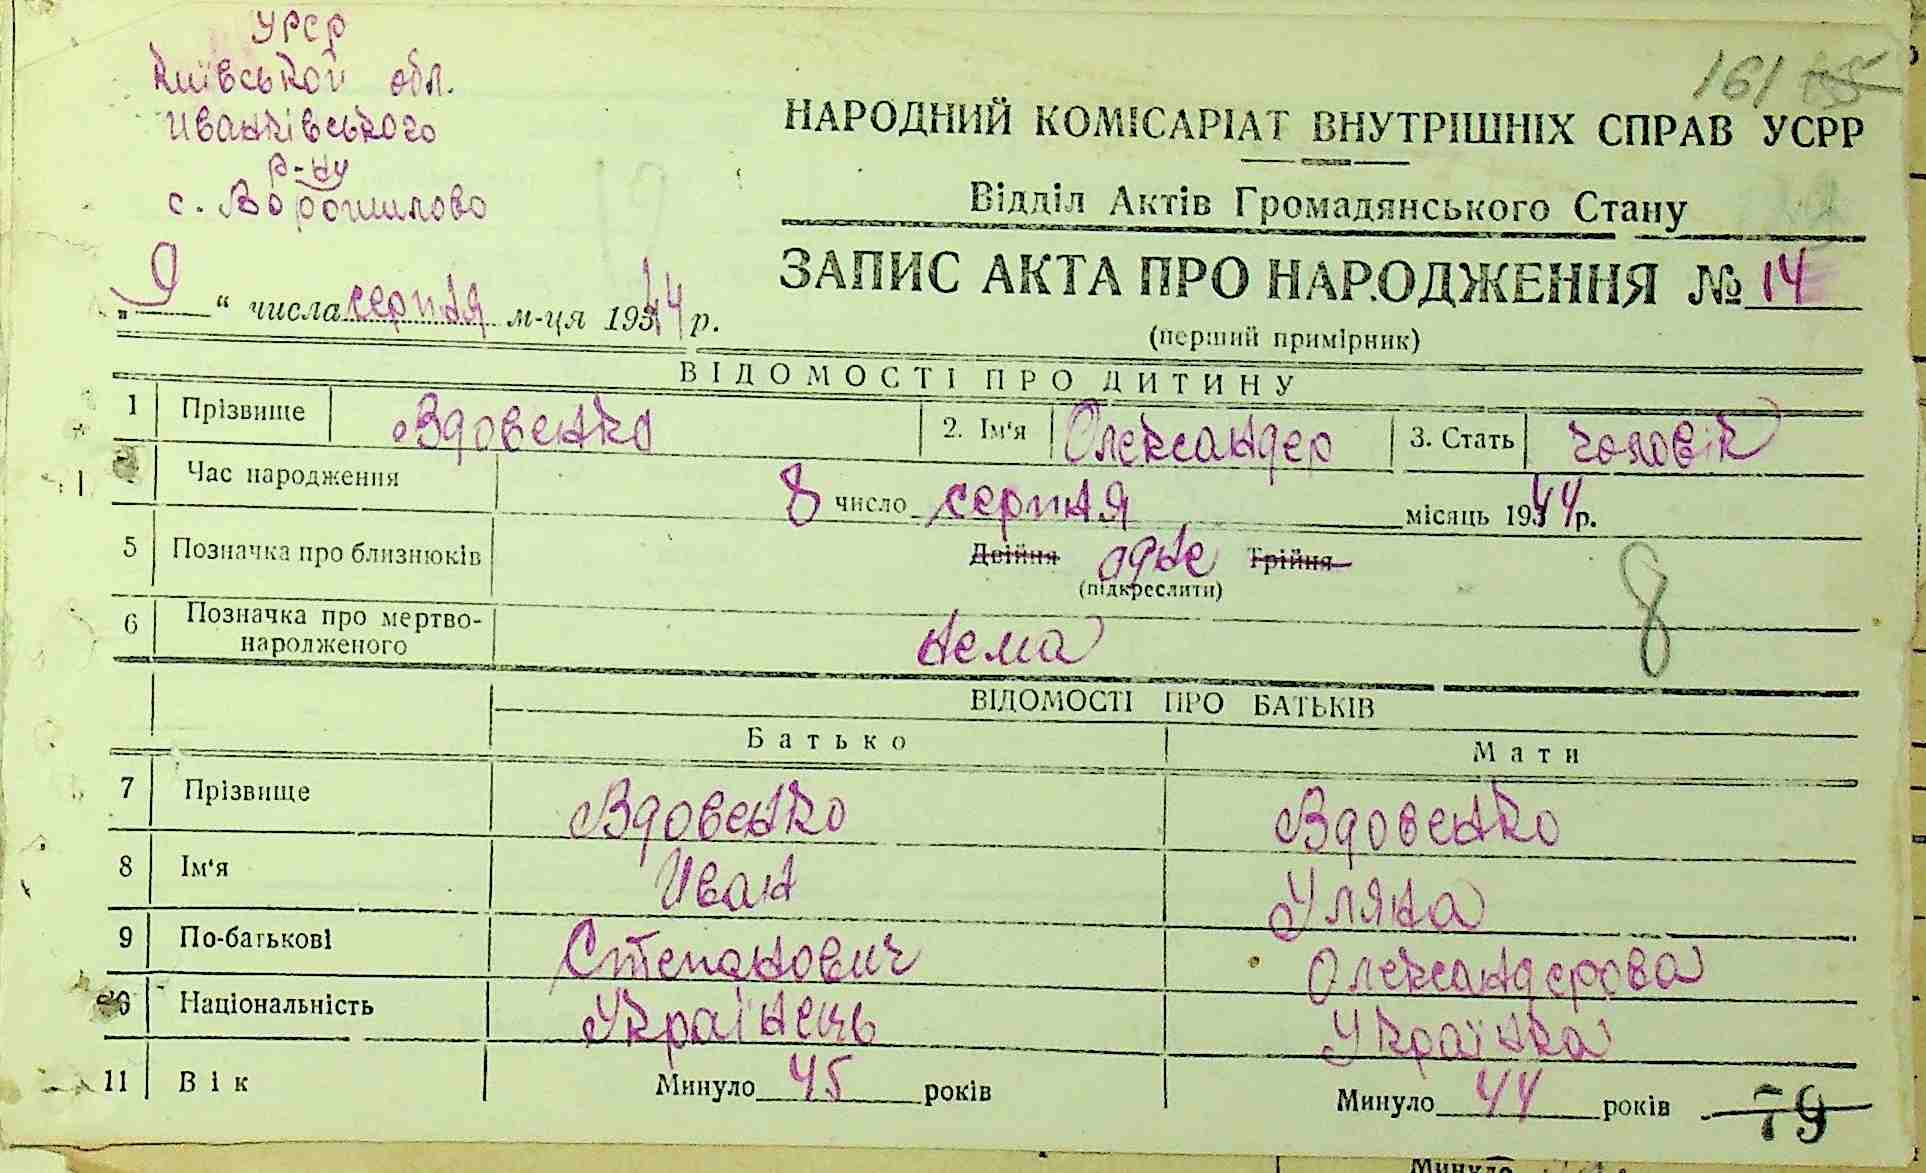 УРСР
Київської обл.
Иванківського
р-ну
с. Ворошилово
161 85
НАРОДНИЙ КОМІСАРІАТ ВНУТРІШНІХ СПРАВ УСРР
Відділ Актів Громадянського Стану
ЗАПИС АКТА ПРО НАРОДЖЕННЯ № 14
(перший примірник)
„ 9 “ числа серпня м-ця 1944 р.
ВІДОМОСТІ ПРО ДИТИНУ
1 Прізвище Вдовенко 2. Ім'я Олександер 3. Стать чоловік
Час народження 8 число серпня місяць 1944 р.
5 Позначка про близнюків Двійня одне Трійня
(підкреслити)
8
6 Позначка про мертво-
народженого нема
ВІДОМОСТІ ПРО БАТЬКІВ
Батько Мати
7 Прізвище Вдовенко Вдовенко
8 Ім'я Иван Уляна
9 По-батькові Степанович Олександерова
Національність Українець Українка
11 Вік Минуло 45 років Минуло 44 років 79
Минуло